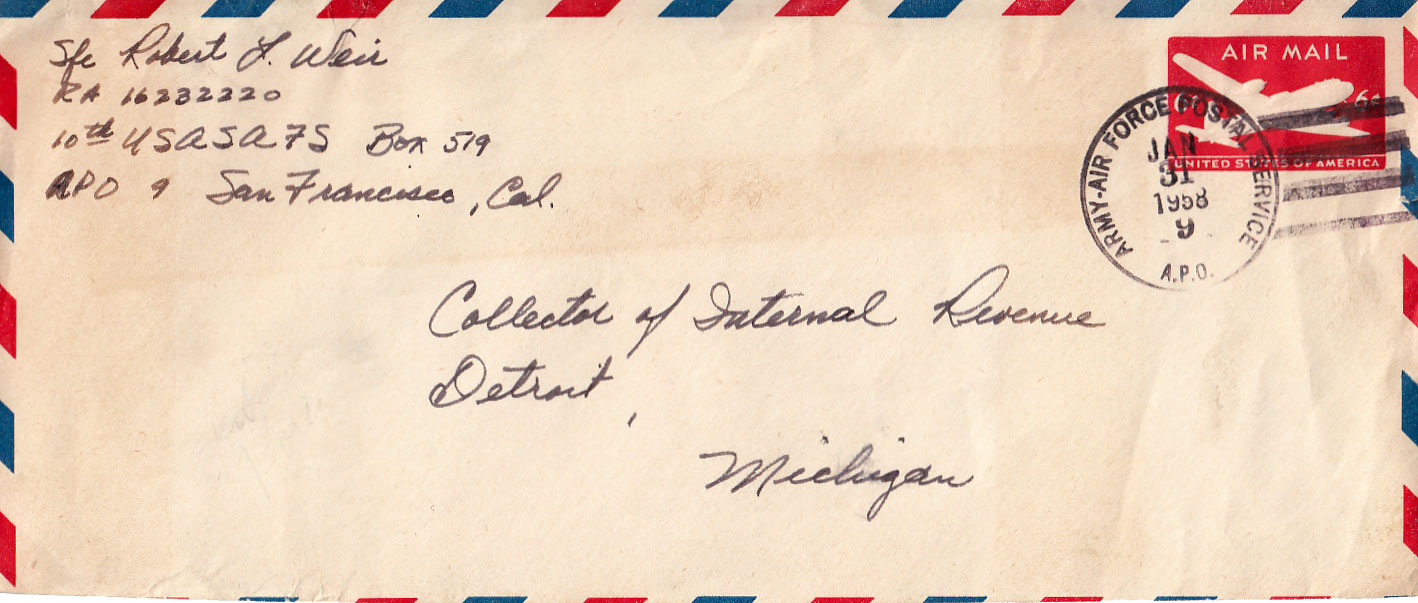 Sfc Robert L. Weir
RA 16232220
10th USASAFS Box 519
APO 9 San Francisco, Cal.
AIR MAIL
6¢
UNITED STATES OF AMERICA
ARMY-AIR FORCE POSTAL SERVICE
JAN
31
1958
9
A.P.O.
Collector of Internal Revenue
Detroit,
Michigan